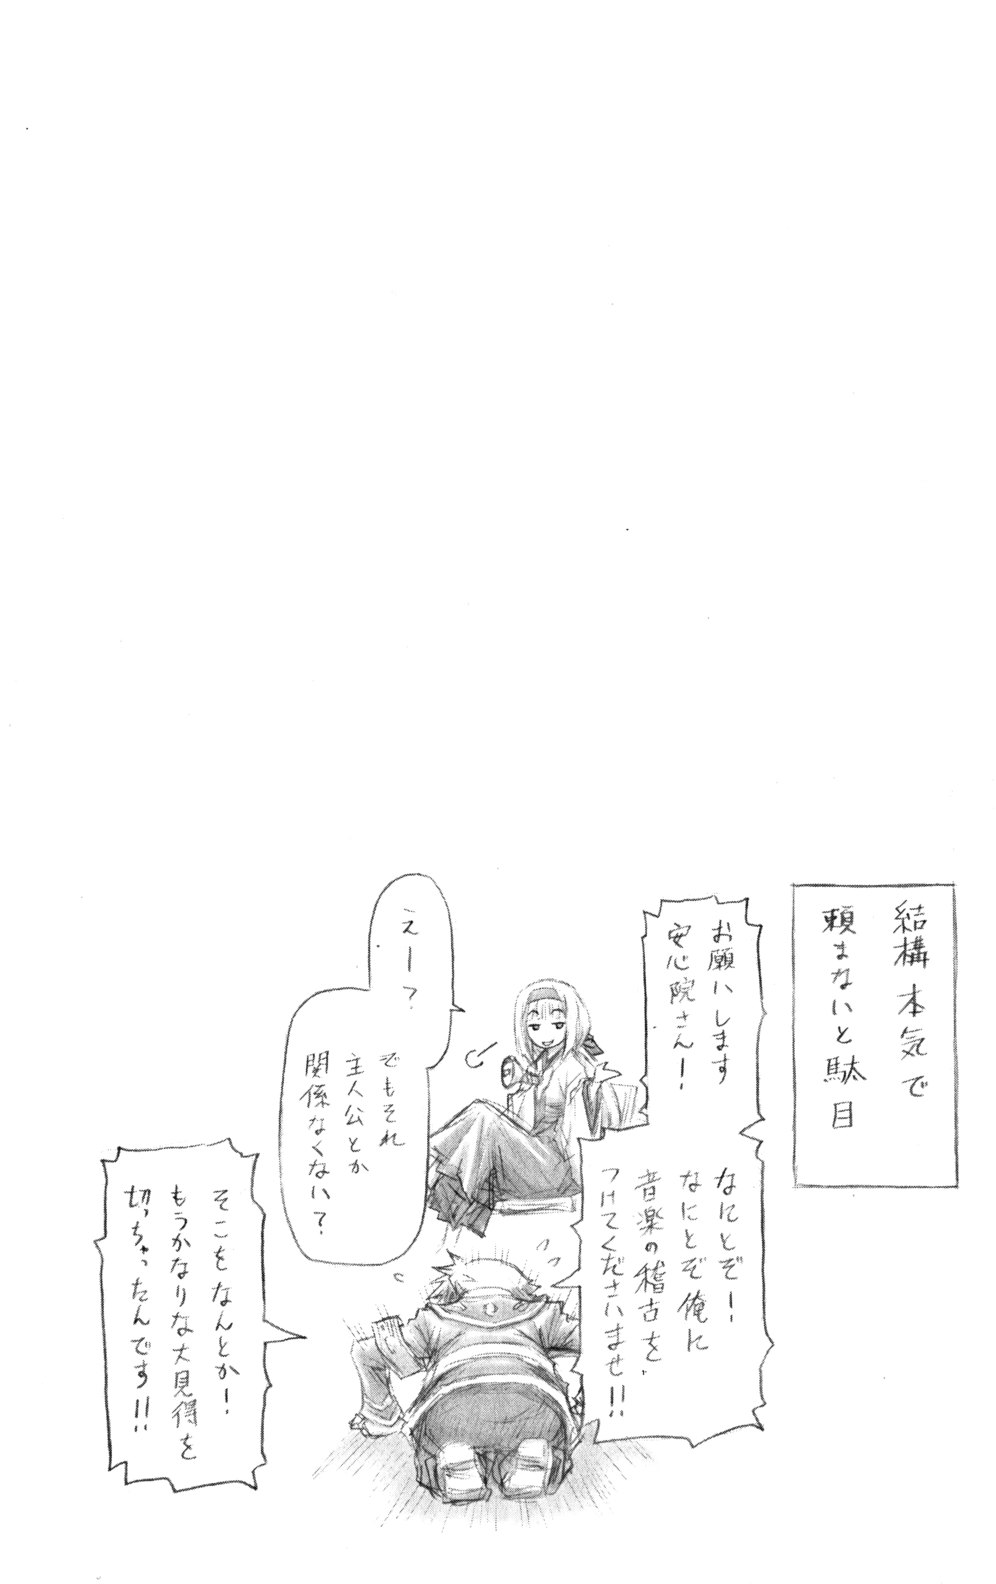 結構本気で
頼まないと駄目
お願いします
安心院さん!
なにとぞー!
なにとぞ俺に
音楽の稽古を
つけてくださいませ!!
えー?
でもそれ
主人公とか
関係なくない?
そこをなんとか!
もうかなりな大見得を
切っちゃったんです!!